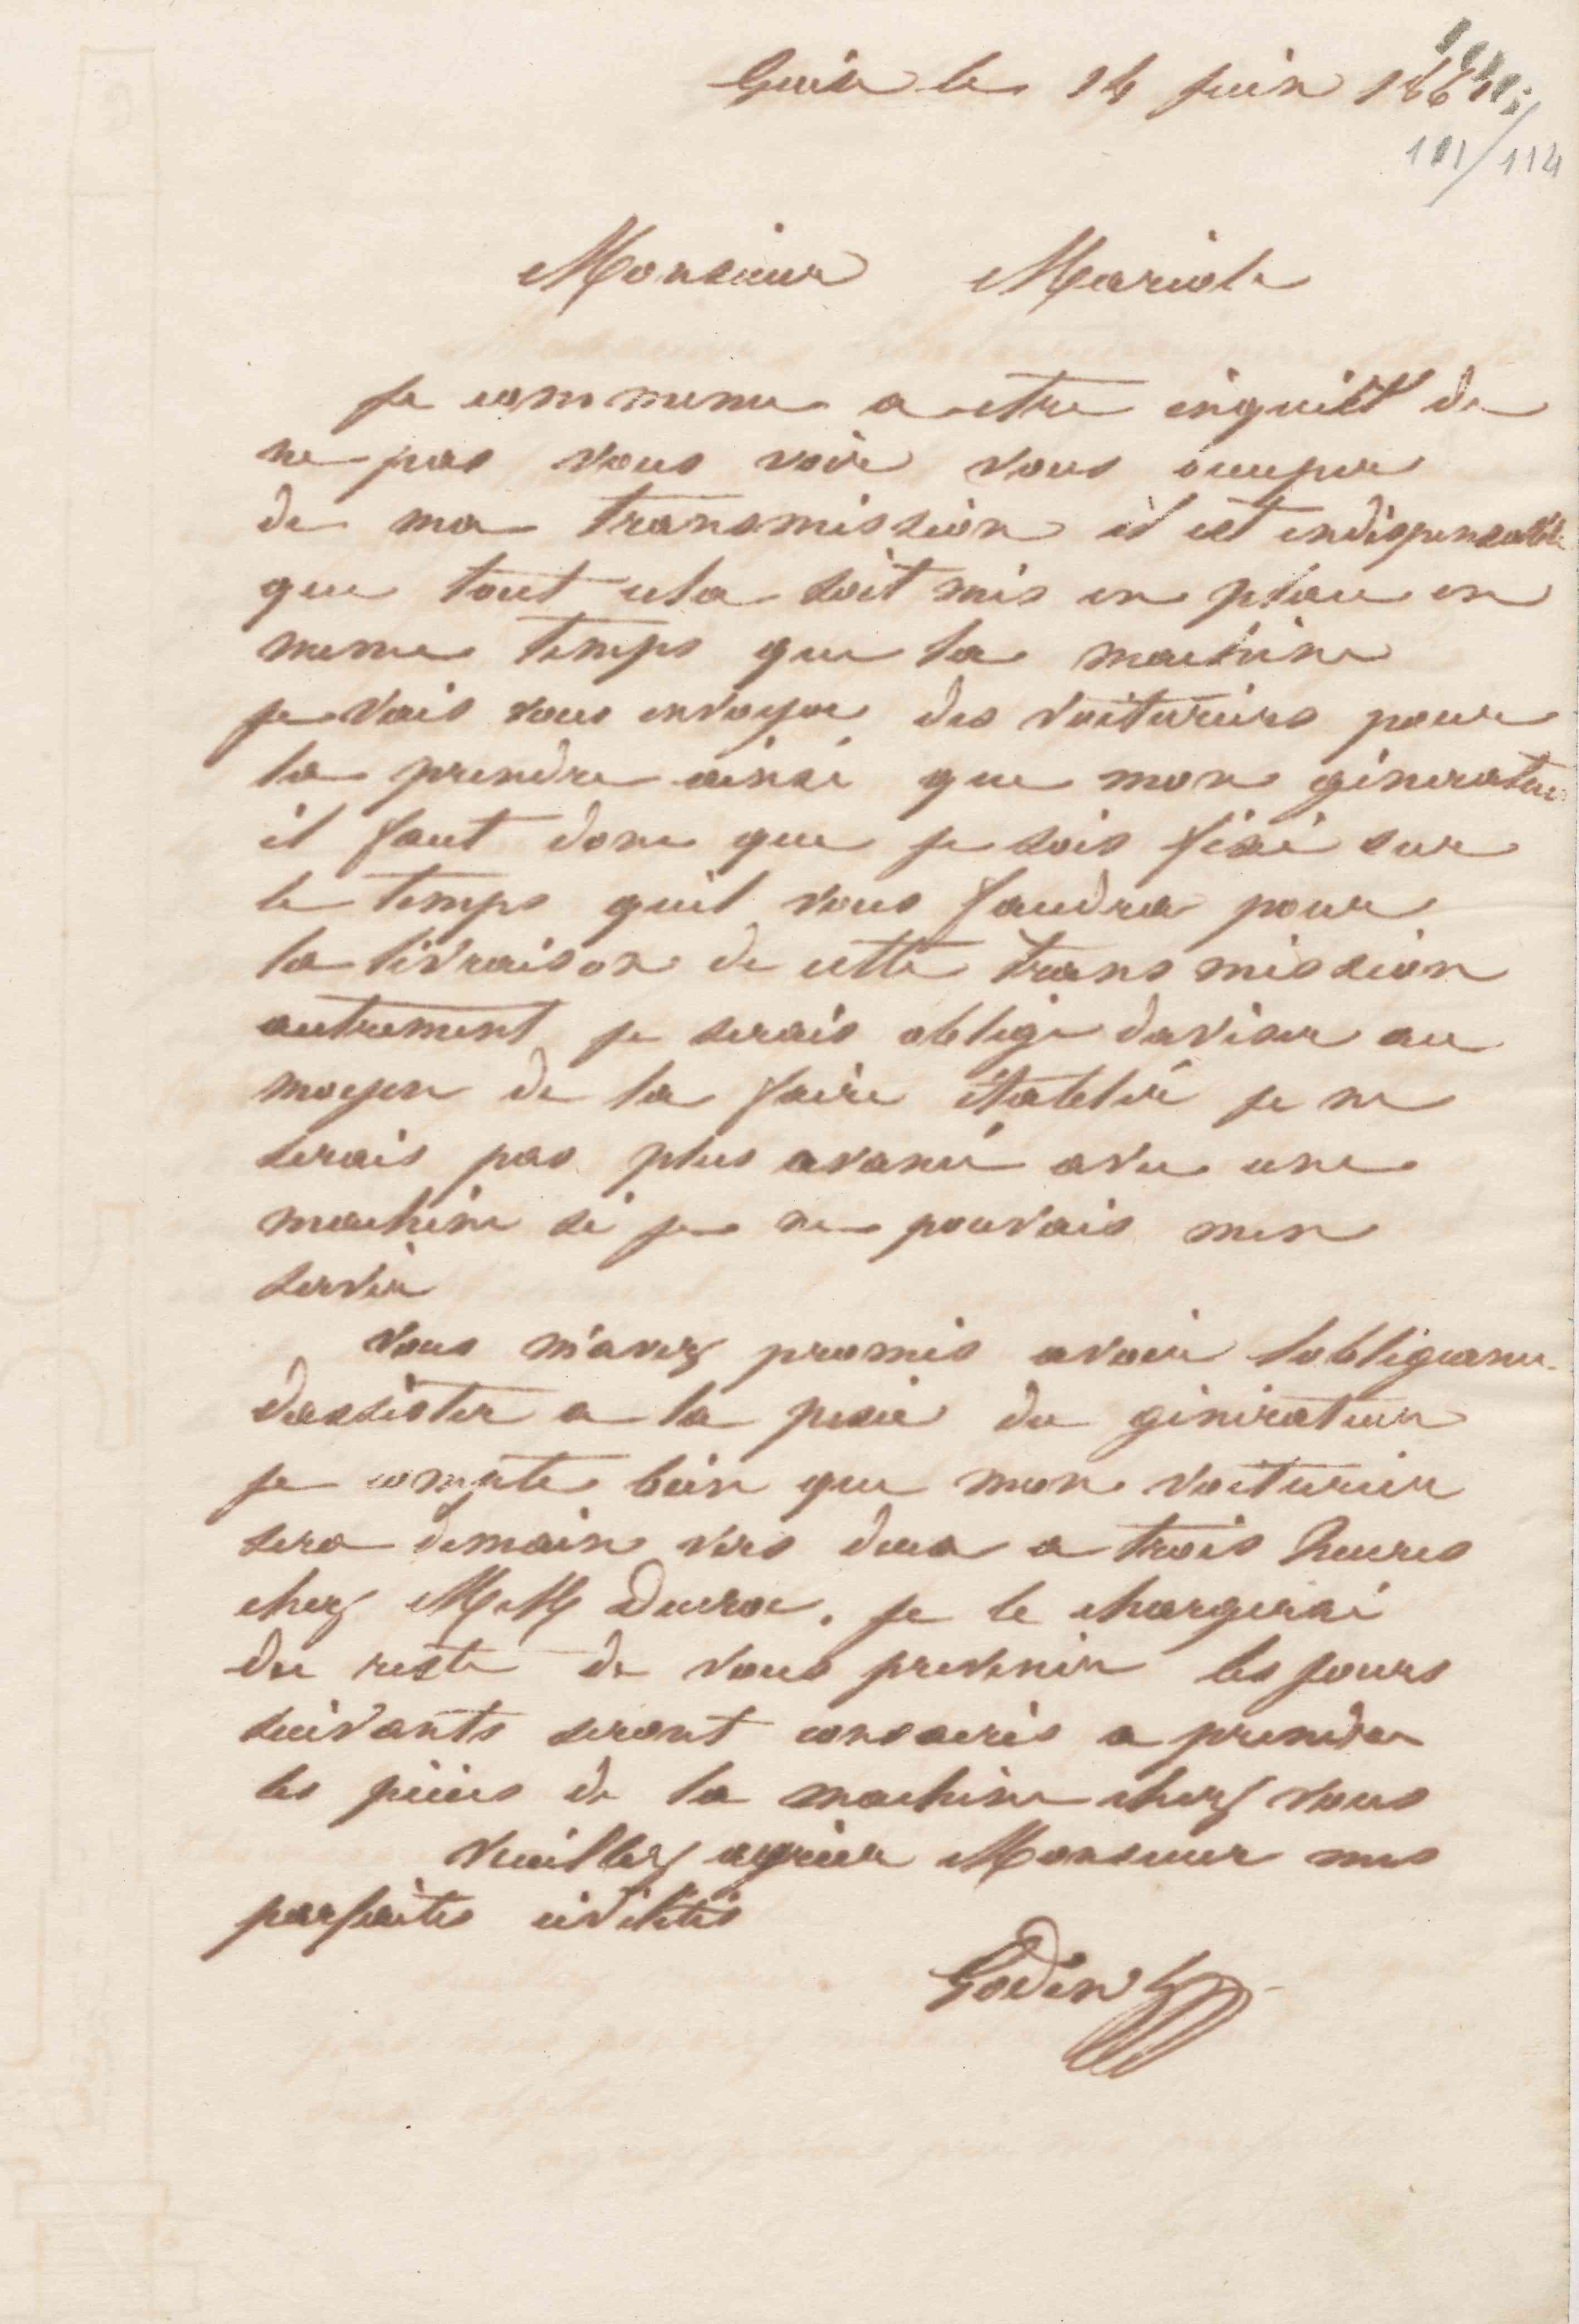 Guise le 14 juin 186
111/114
Monsieur Mariole
je commence a etre inquiet de
ne pas vous voir vous occuper
de ma transmission il est indispensable
que tout cela soit mis en place en
meme temps que la machine
je vais vous envoyer des voituriers pour
la prendre ainsi que mon générateur
il faut donc que je sois fixé sur
le temps quil vous faudra pour
la livraison de cette transmission
autrement je serais obligé daviser au
moyen de la faire établir je ne
serais pas plus avancé avec une
machine si je ne pouvais men
servir
vous m'avez promis avoir lobligeance
dassister a la pesée du générateur
je compte bien que mon voiturier
sera demain vers deux a trois heures
chez MM Duroc. je le chargerai
du reste de vous prevenir les jours
suivants seront consacrés a prendre
les pièces de la machine chez vous
veuillez agréer Monsieur mes
parfaites civilités
Godin